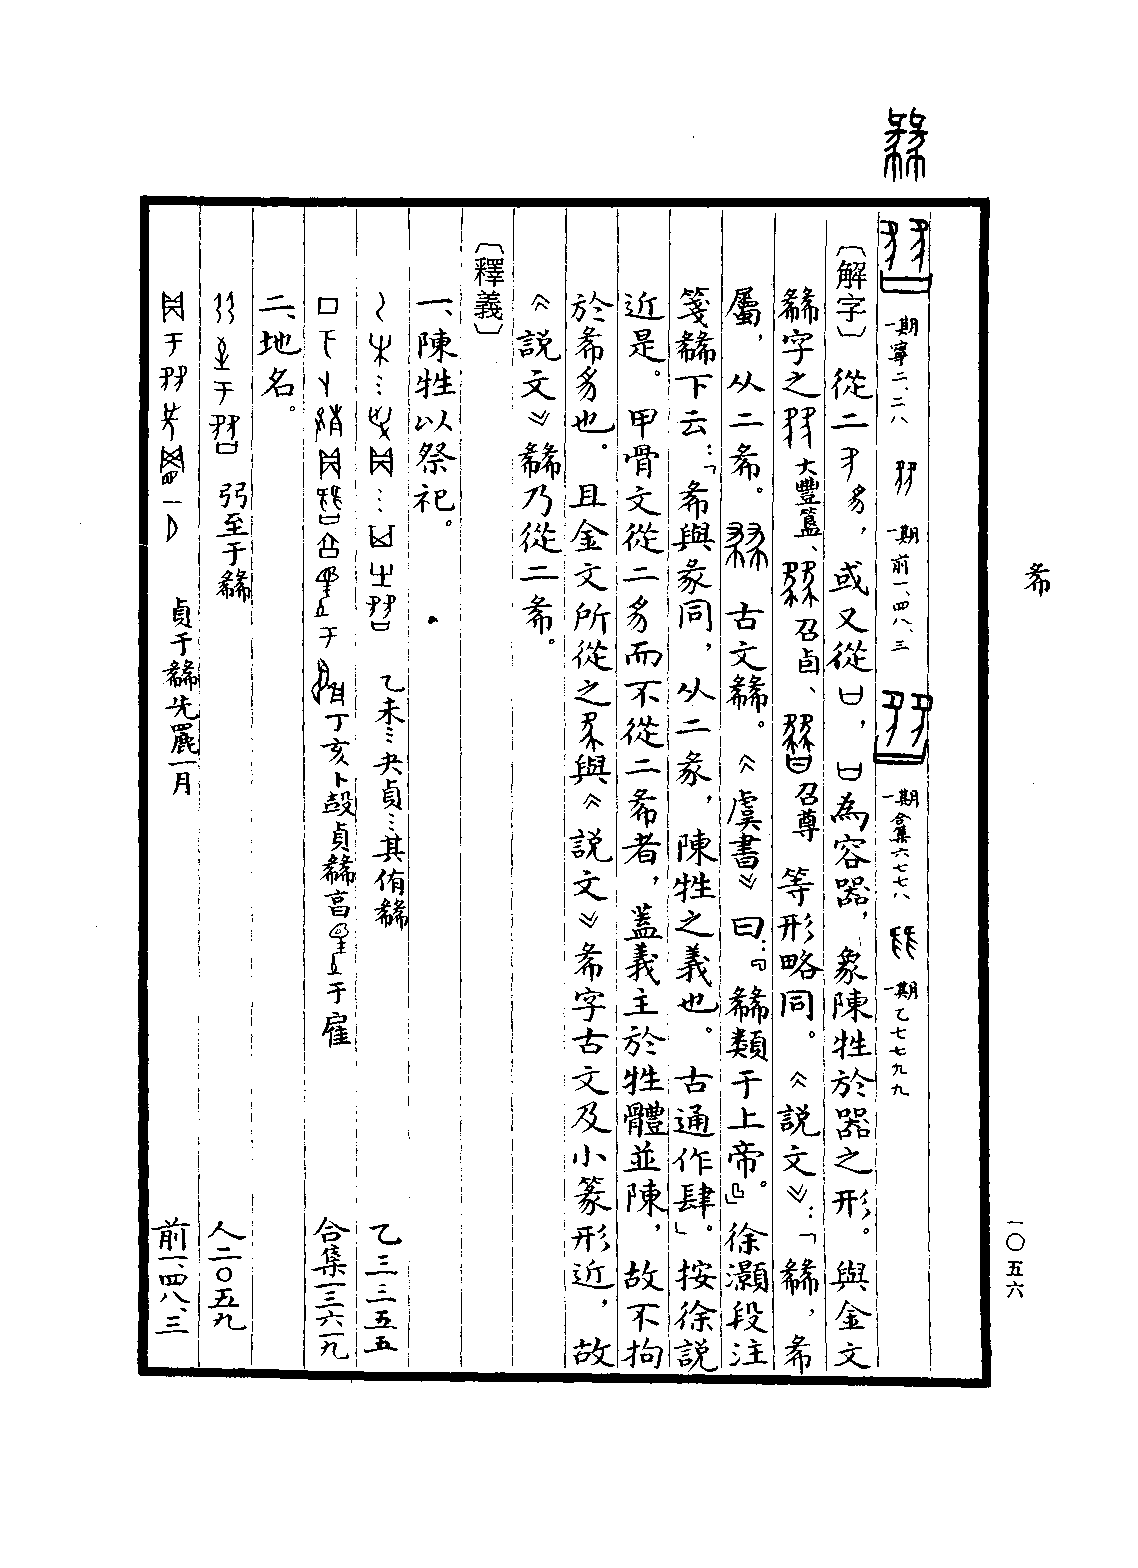 㣇
一〇五六
一期 寧二、二八 一期 前一、四八、三 一期 合集六七七八 一期 乙七七九九
〔解字〕從二豸，或又從凵，凵為容器，象陳牲於器之形。與金文
𢑓字之 大豐簋、 召卣、 召尊 等形略同。《說文》：「𢑓，㣇
屬，从二㣇。 古文𢑓。《虞書》曰：『𢑓類于上帝。』徐灝段注
箋𢑓下云：「㣇與彖同，从二彖，陳牲之義也。古通作肆」。按徐說
近是。甲骨文從二豸而不從二㣇者，蓋義主於牲體並陳，故不拘
於㣇豸也。且金文所從之 與《說文》㣇字古文及小篆形近，故
《說文》𢑓乃從二㣇。
〔釋義〕
一、陳牲以祭祀。
乙未…央貞…其侑𢑓 乙三三五五
丁亥卜㱿貞𢑓 于雇 合集一三六一九
二、地名。
弜至于𢑓 人二〇五九
貞于𢑓先 一月 前一、四八、三